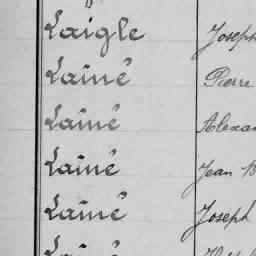 Laigle Joseph
Lainé Pierre
Lainé Alexan
Lainé Jean B
Lainé Joseph
Lainé